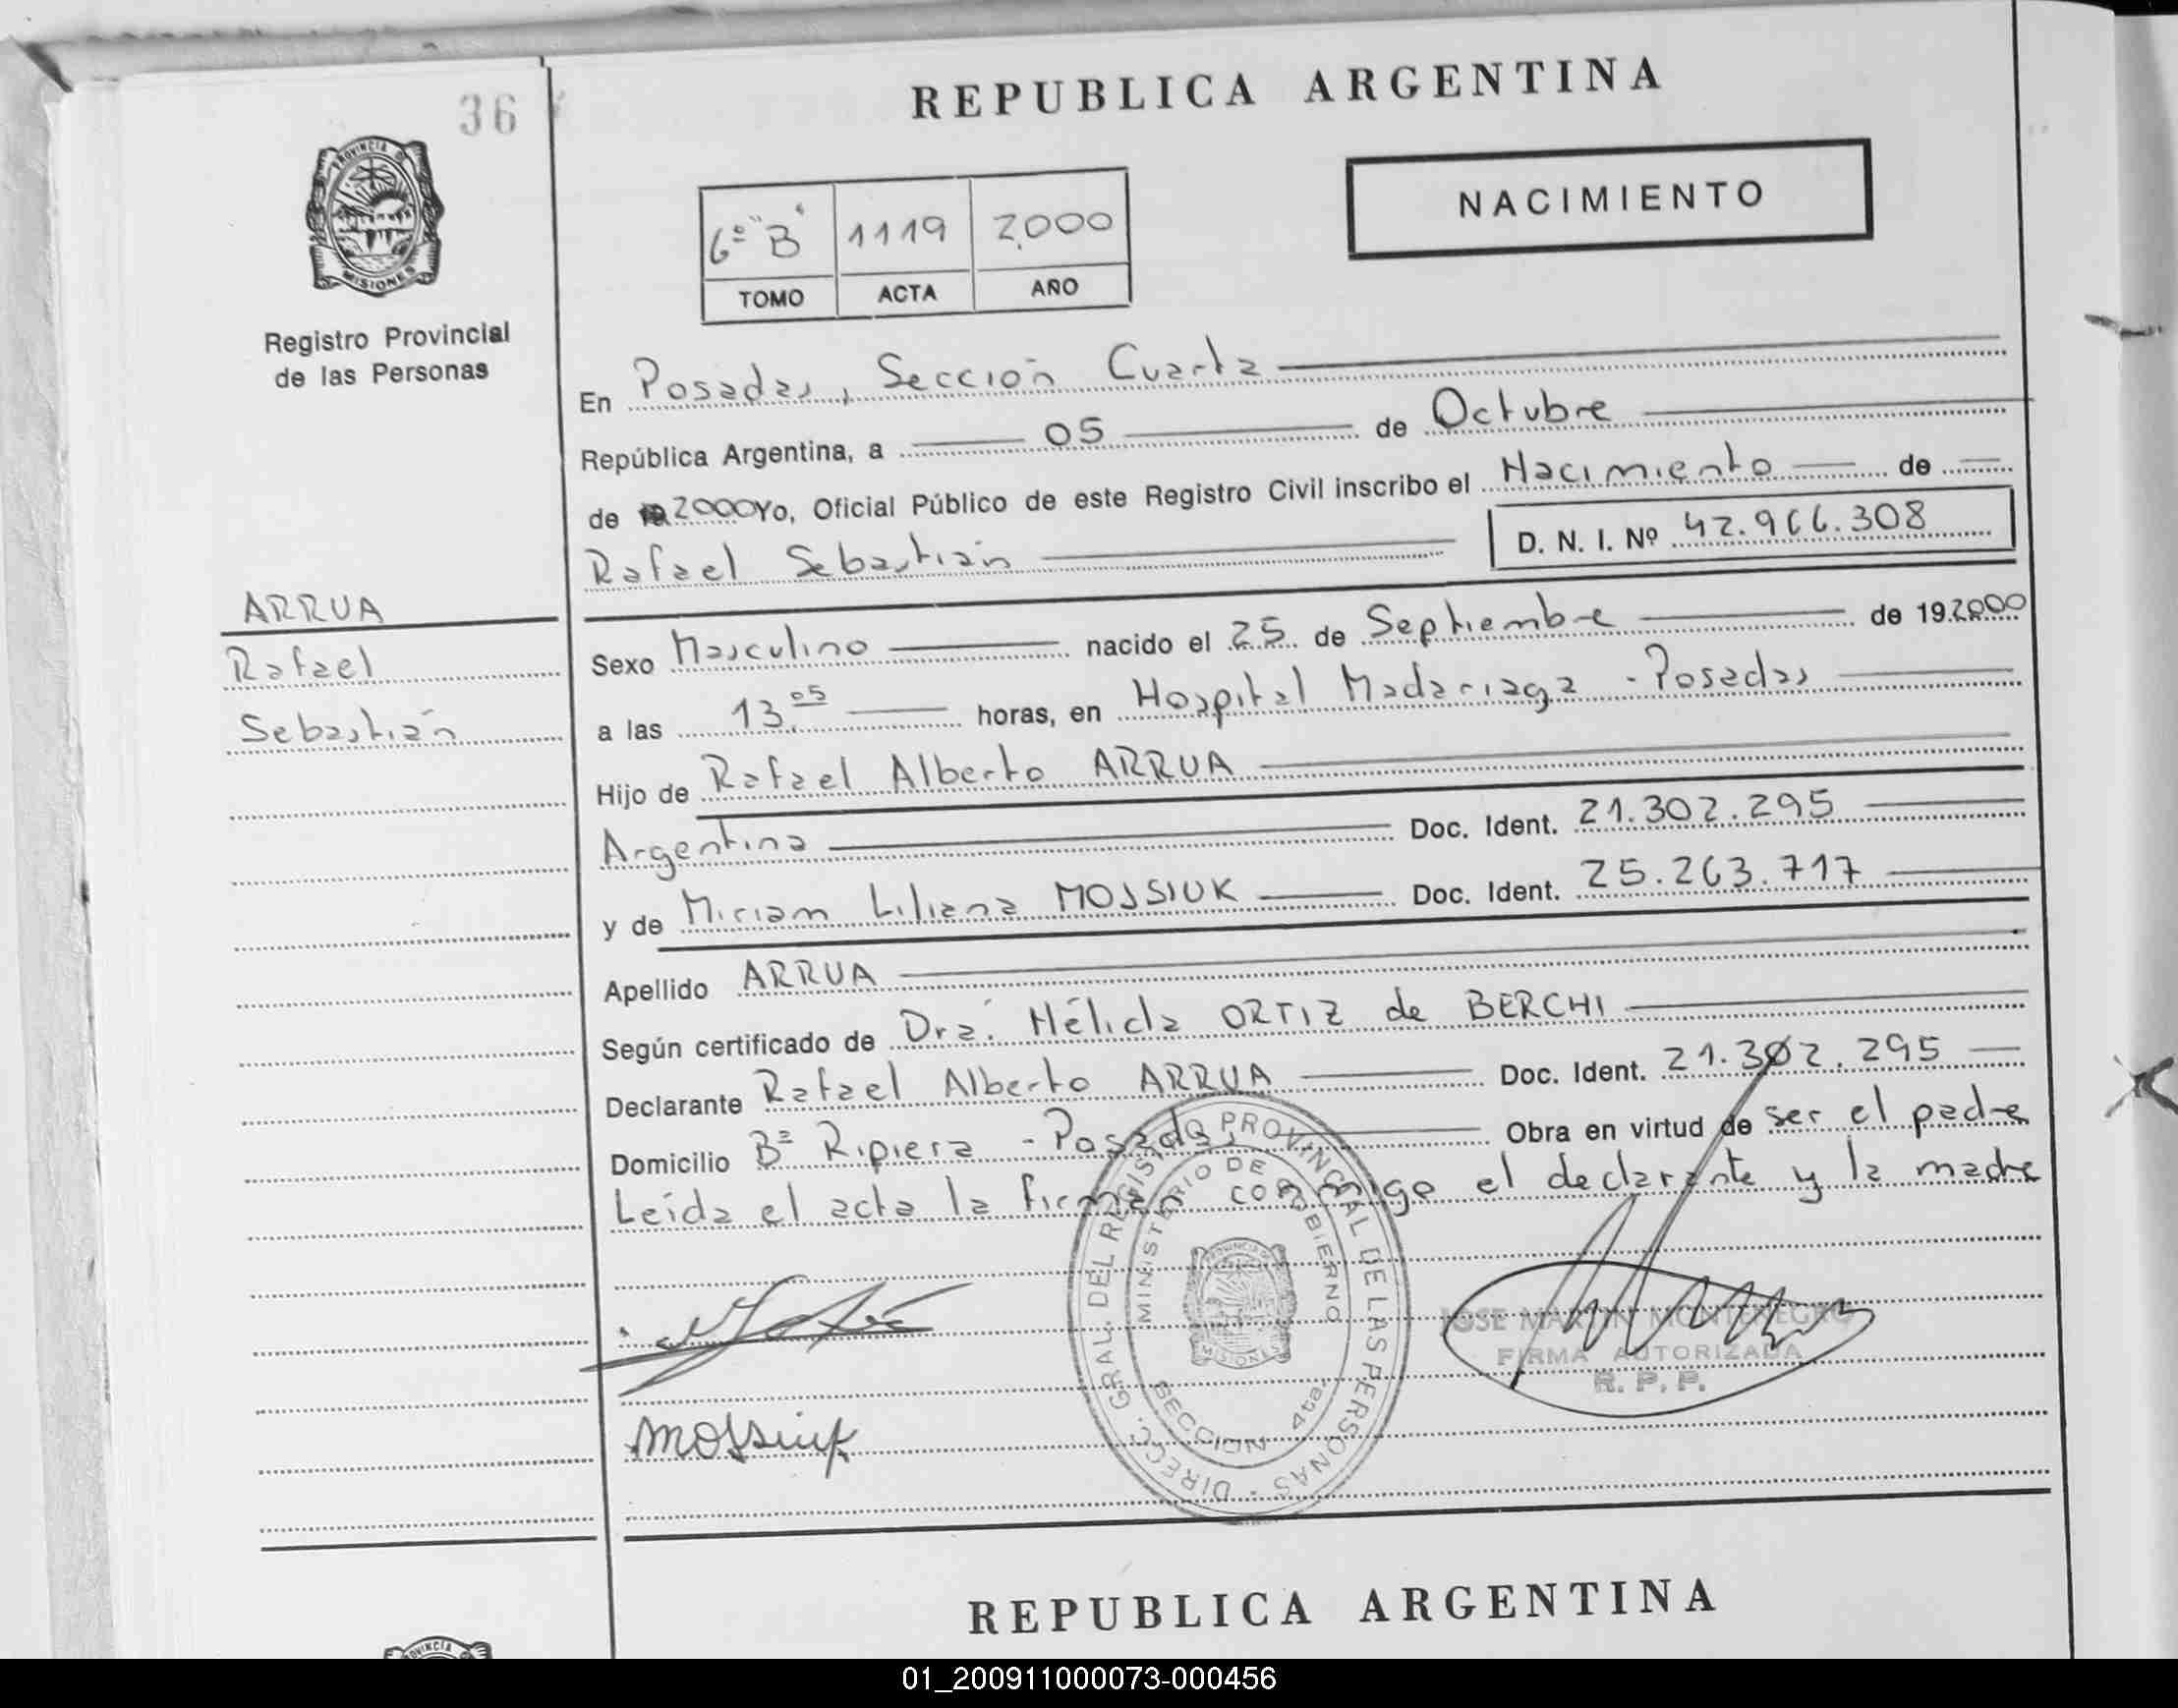 36
REPUBLICA ARGENTINA
PROVINCIA DE
MISIONES
NACIMIENTO
6º "B" 1119 2,000
TOMO ACTA AÑO
Registro Provincial
de las Personas
En Posadas, Sección Cuarta
República Argentina, a 05 de Octubre
de 2000 Yo, Oficial Público de este Registro Civil inscribo el Nacimiento de
Rafael Sebastián D. N. I. Nº 42.966.308
ARRUA
Rafael
Sebastián
Sexo Masculino nacido el 25 de Septiembre de 192000
a las 13.05 horas, en Hospital Madariaga - Posadas
Hijo de Rafael Alberto ARRUA
Argentina Doc. Ident. 21.302.295
y de Miriam Liliana MOSSIUK Doc. Ident. 25.263.717
Apellido ARRUA
Según certificado de Dra. Nélida ORTIZ de BERCHI
Declarante Rafael Alberto ARRUA Doc. Ident. 21.302.295
Domicilio Bº Ripiera - Posadas Obra en virtud de ser el padre
Leída el acta la firman conmigo el declarante y la madre
DIRECC. GRAL. DEL REGISTRO PROVINCIAL DE LAS PERSONAS
MINISTERIO DE GOBIERNO
PROVINCIA DE
MISIONES
SECCION 4ta.
JOSE MARTIN MONTENEGRO
FIRMA AUTORIZADA
R. P. P.
Mossiuk
REPUBLICA ARGENTINA
PROVINCIA
01_200911000073-000456